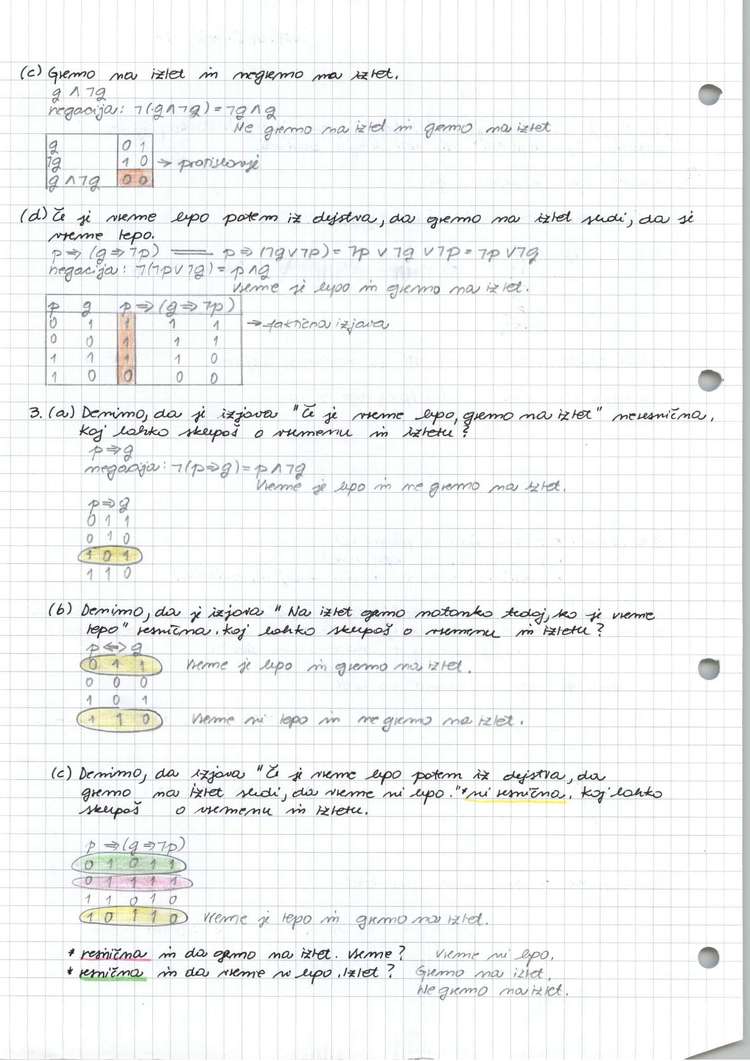 (c) Gremo na izlet in negremo na izlet.
g ∧ ¬g
negacija: ¬(g∧¬g) = ¬g ∧ g
Ne gremo na izlet in gremo na izlet
g 0 1
¬g 1 0 → protislovje
g ∧ ¬g 0 0
(d) Če je vreme lepo potem iz dejstva, da gremo na izlet sledi, da je
vreme lepo.
p ⇒ (g ⇒ ¬p) = p ⇒ (¬g ∨ ¬p) = ¬p ∨ ¬g ∨ ¬p = ¬p ∨ ¬g
negacija: ¬(¬p ∨ ¬g) = p ∧ g
Vreme je lepo in gremo na izlet.
p g p ⇒ (g ⇒ ¬p)
0 1 1 1 1 → faktična izjava
0 0 1 1 1
1 1 1 1 0
1 0 0 0 0
3. (a) Denimo, da je izjava "Če je vreme lepo, gremo na izlet" neresnična,
kaj lahko sklepaš o vremenu in izletu?
p ⇒ g
negacija: ¬(p ⇒ g) = p ∧ ¬g
Vreme je lepo in ne gremo na izlet.
p ⇒ g
0 1 1
0 1 0
1 0 1
1 1 0
(b) Denimo, da je izjava "Na izlet gremo natanko tedaj, ko je vreme
lepo" resnična. Kaj lahko sklepaš o vremenu in izletu?
p ⇔ g
0 1 1 Vreme je lepo in gremo na izlet.
0 0 0
1 0 1
1 1 0 Vreme ni lepo in ne gremo na izlet.
(c) Denimo, da izjava "Če je vreme lepo potem iz dejstva, da
gremo na izlet sledi, da vreme ni lepo."* ni resnična. Kaj lahko
sklepaš o vremenu in izletu.
p ⇒ (g ⇒ ¬p)
0 1 0 1 1
0 1 1 1 1
1 1 0 1 0
1 0 1 1 0 Vreme je lepo in gremo na izlet.
* resnična in da gremo na izlet. Vreme? Vreme ni lepo.
* resnična in da vreme ni lepo. Izlet? Gremo na izlet.
Ne gremo na izlet.